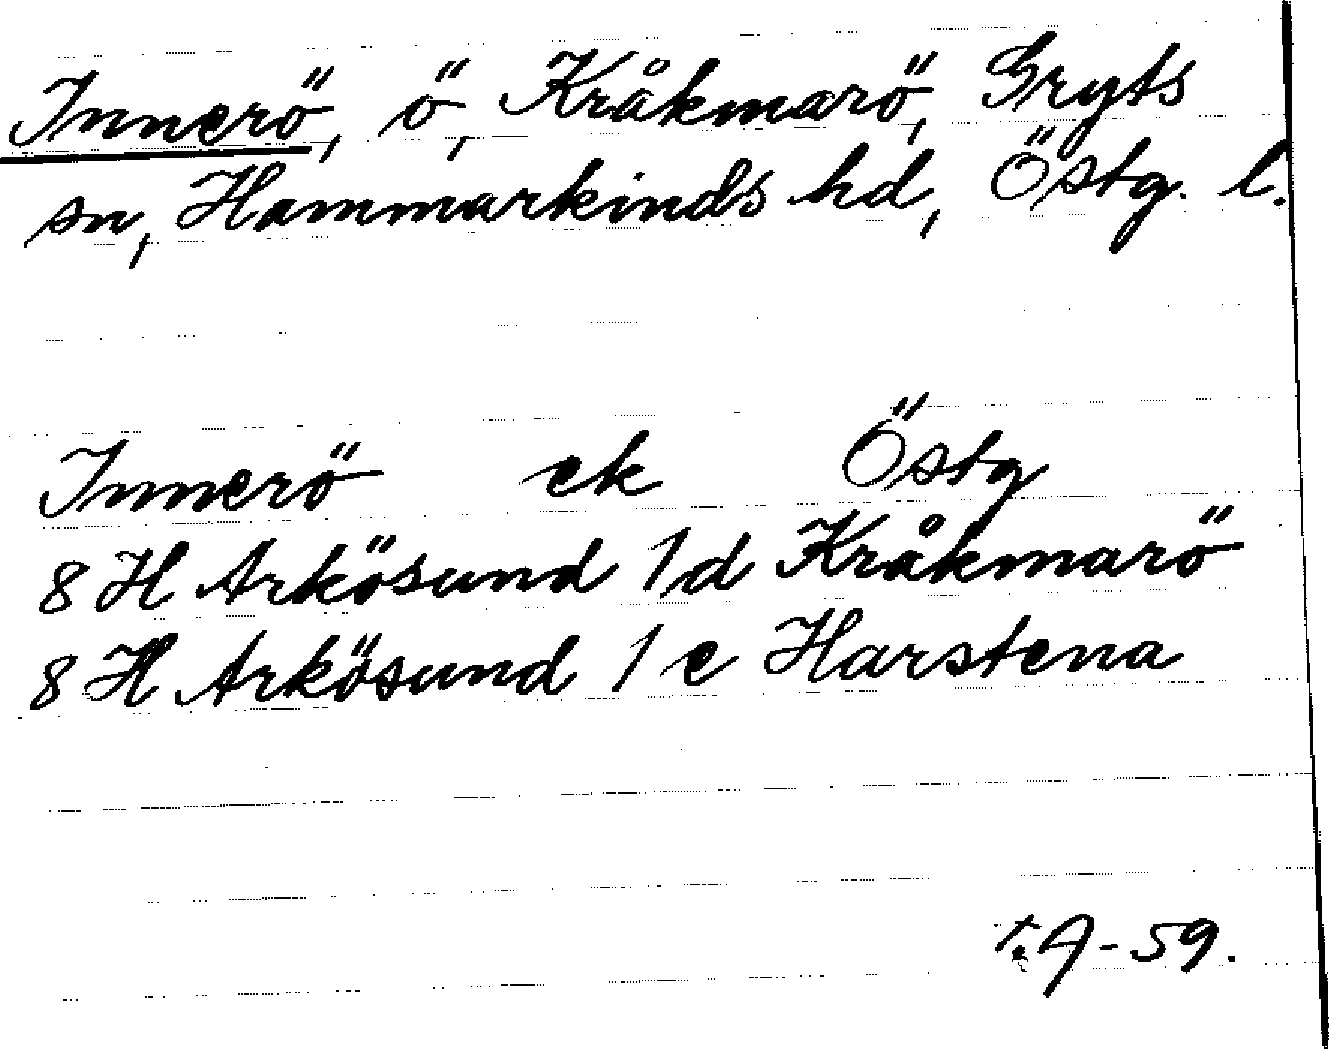 Innerö, ö, Kråkmarö, Gryts
sn, Hammarkinds hd, Östg. l.
Innerö ek Östg
8 H Arkösund 1 d Kråkmarö
8 H Arkösund 1 c Harstena
-59.